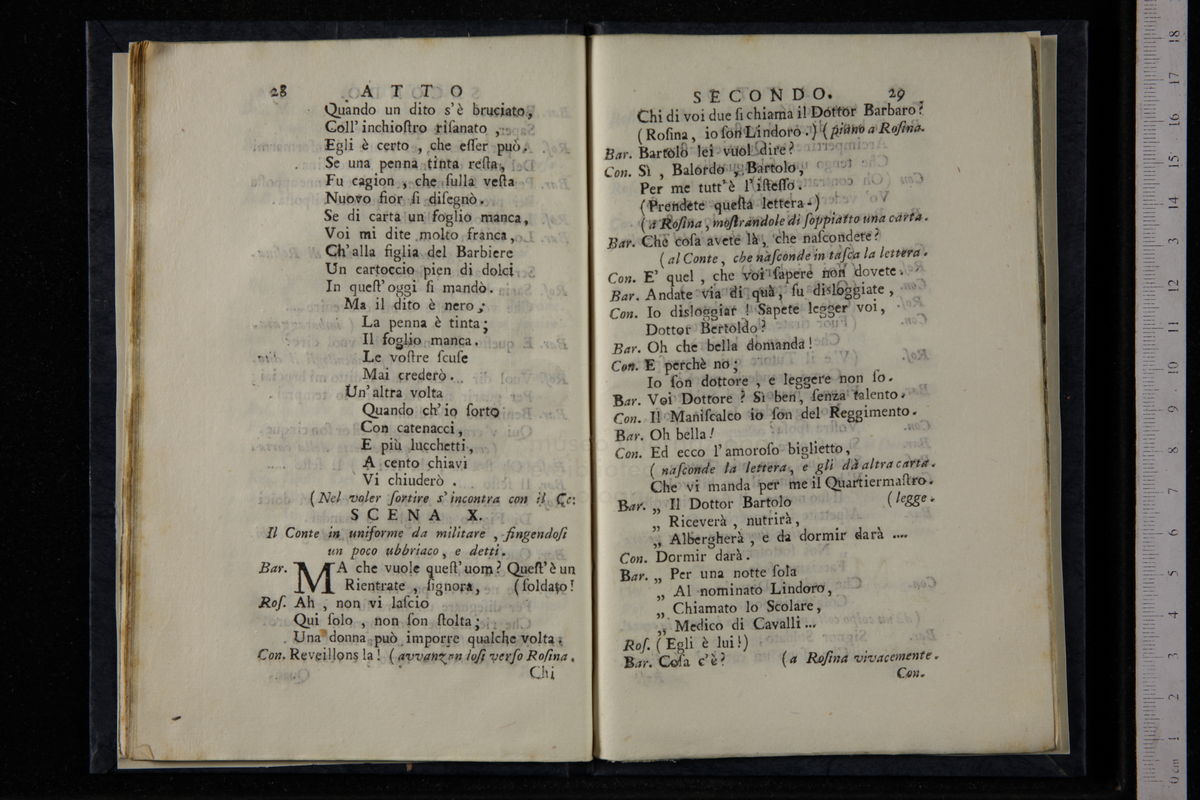 28 ATTO
Quando un dito s'è bruciato,
Coll' inchioſtro riſanato ,
Egli è certo , che eſſer può.
Se una penna tinta reſta,
Fu cagion , che ſulla veſta
Nuovo fior ſi diſegnò.
Se di carta un foglio manca,
Voi mi dite molto franca,
Ch'alla figlia del Barbiere
Un cartoccio pien di dolci
In queſt'oggi ſi mandò.
Ma il dito è nero ;
La penna è tinta;
Il foglio manca.
Le voſtre ſcuſe
Mai crederò.
Un'altra volta
Quando ch'io ſorto
Con catenacci,
E più lucchetti,
A cento chiavi
Vi chiuderò .
(Nel voler ſortire s'incontra con il
SCENA X.
Il Conte in uniforme da militare , fingendoſi
un poco ubbriaco, e detti.
Bar. MA che vuole queſt'uom? Queſt'è un
Rientrate , ſignora, (ſoldato!
Roſ. Ah , non vi laſcio
Qui ſolo , non ſon ſtolta;
Una donna può imporre qualche volta.
Con. Reveillons la! (avvanzandoſi verſo Roſina.
Chi
SECONDO. 29
Chi di voi due ſi chiama il Dottor Barbaro?
(Roſina, io ſon Lindoro.) (piano a Roſina.
Bar. Bartolo lei vuol dire?
Con. Sì , Balordo , Bartolo,
Per me tutt'è l'iſteſſo.
(Prendete queſta lettera.)
(a Roſina, moſtrandole di ſoppiatto una carta.
Bar. Che coſa avete là, che naſcondete?
(al Conte, che naſconde in taſca la lettera.
Con. E' quel , che voi ſapere non dovete.
Bar. Andate via di quà, ſu disloggiate ,
Con. Io disloggiar ! Sapete legger voi,
Dottor Bertoldo?
Bar. Oh che bella domanda!
Con. E perchè no;
Io ſon dottore , e leggere non ſo.
Bar. Voi Dottore ? Sì ben, ſenza talento.
Con. Il Maniſcalco io ſon del Reggimento.
Bar. Oh bella!
Con. Ed ecco l'amoroſo biglietto,
( naſconde la lettera, e gli dà altra carta.
Che vi manda per me il Quartiermaſtro.
Bar. „ Il Dottor Bartolo (legge.
„ Riceverà , nutrirà,
„ Albergherà , e da dormir darà ....
Con. Dormir darà.
Bar. „ Per una notte ſola
„ Al nominato Lindoro,
„ Chiamato lo Scolare,
„ Medico di Cavalli ...
Roſ. (Egli è lui!)
Bar. Coſa c'è? (a Roſina vivacemente.
Con.